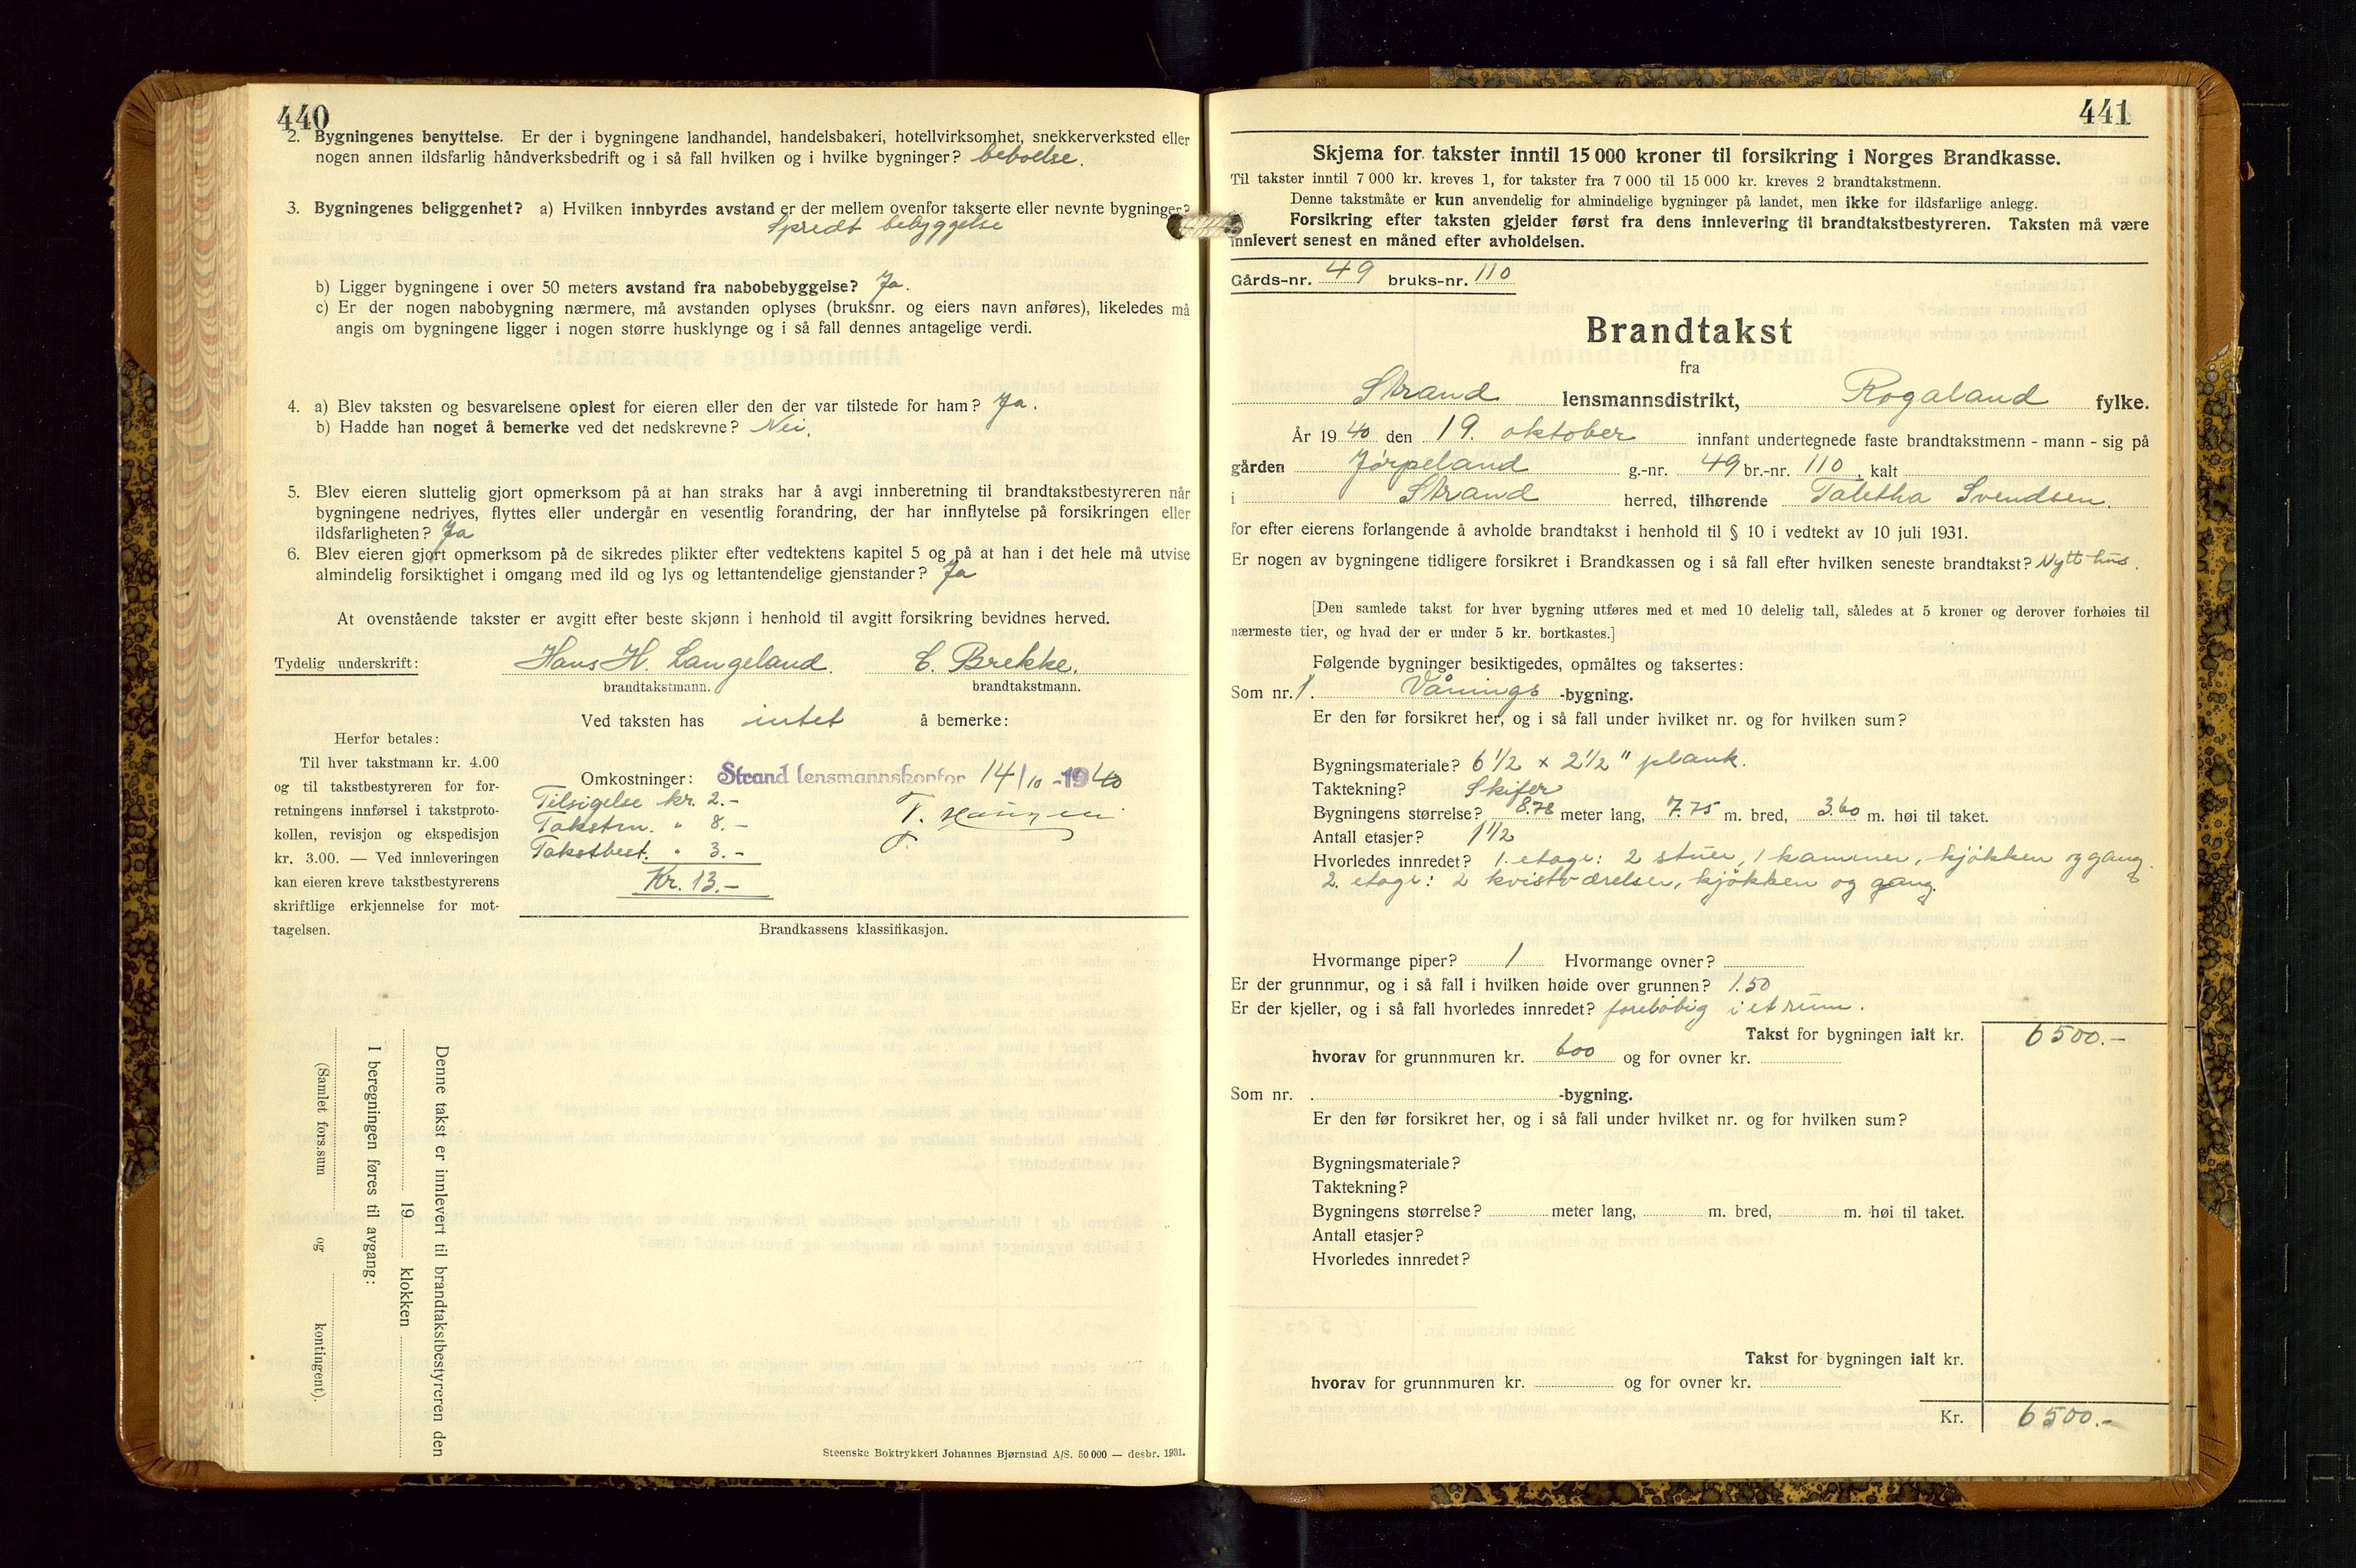 440
2. Bygningenes benyttelse. Er der i bygningene landhandel, handelsbakeri, hotellvirksomhet, snekkerverksted eller
nogen annen ildsfarlig håndverksbedrift og i så fall hvilken og i hvilke bygninger? beboelse.
3. Bygningenes beliggenhet? a) Hvilken innbyrdes avstand er der mellem ovenfor takserte eller nevnte bygninger?
Spredt bebyggelse
b) Ligger bygningene i over 50 meters avstand fra nabobebyggelse? Ja.
c) Er der nogen nabobygning nærmere, må avstanden oplyses (bruksnr. og eiers navn anføres), likeledes må
angis om bygningene ligger i nogen større husklynge og i så fall dennes antagelige verdi.
4. a) Blev taksten og besvarelsene oplest for eieren eller den der var tilstede for ham? Ja.
b) Hadde han noget å bemerke ved det nedskrevne? Nei.
5. Blev eieren sluttelig gjort opmerksom på at han straks har å avgi innberetning til brandtakstbestyreren når
bygningene nedrives, flyttes eller undergår en vesentlig forandring, der har innflytelse på forsikringen eller
ildsfarligheten? Ja
6. Blev eieren gjort opmerksom på de sikredes plikter efter vedtektens kapitel 5 og på at han i det hele må utvise
almindelig forsiktighet i omgang med ild og lys og lettantendelige gjenstander? Ja
At ovenstående takster er avgitt efter beste skjønn i henhold til avgitt forsikring bevidnes herved.
Tydelig underskrift: Hans H. Langeland. C. Brekke.
brandtakstmann. brandtakstmann.
Ved taksten has intet å bemerke:
Herfor betales:
Til hver takstmann kr. 4.00
og til takstbestyreren for for-
retningens innførsel i takstproto-
kollen, revisjon og ekspedisjon
kr. 3.00. — Ved innleveringen
kan eieren kreve takstbestyrerens
skriftlige erkjennelse for mot-
tagelsen.
Omkostninger: Strand lensmannskontor 14/10-1940
Tilsigelse kr. 2.-
Takstm. " 8.-
Takstbest. " 3.-
Kr. 13.-
Brandkassens klassifikasjon.
Denne takst er innlevert til brandtakstbestyreren den
19 klokken
I beregningen føres til avgang:
(Samlet fors.sum og kontingent).
Steenske Boktrykkeri Johannes Bjørnstad A/S. 50 000 — desbr. 1931.
441
Skjema for takster inntil 15 000 kroner til forsikring i Norges Brandkasse.
Til takster inntil 7 000 kr. kreves 1, for takster fra 7 000 til 15 000 kr. kreves 2 brandtakstmenn.
Denne takstmåte er kun anvendelig for almindelige bygninger på landet, men ikke for ildsfarlige anlegg.
Forsikring efter taksten gjelder først fra dens innlevering til brandtakstbestyreren. Taksten må være
innlevert senest en måned efter avholdelsen.
Gårds-nr. 49 bruks-nr. 110
Brandtakst
fra
Strand lensmannsdistrikt, Rogaland fylke.
År 1940 den 19. oktober innfant undertegnede faste brandtakstmenn - mann - sig på
gården Jørpeland g.-nr. 49 br.-nr. 110, kalt
i Strand herred, tilhørende Taletha Svendsen.
for efter eierens forlangende å avholde brandtakst i henhold til § 10 i vedtekt av 10 juli 1931.
Er nogen av bygningene tidligere forsikret i Brandkassen og i så fall efter hvilken seneste brandtakst? Nytt hus.
[Den samlede takst for hver bygning utføres med et med 10 delelig tall, således at 5 kroner og derover forhøies til
nærmeste tier, og hvad der er under 5 kr. bortkastes.]
Følgende bygninger besiktigedes, opmåltes og taksertes:
Som nr. 1. Vånings -bygning.
Er den før forsikret her, og i så fall under hvilket nr. og for hvilken sum?
Bygningsmateriale? 6 1/2 x 2 1/2" plank.
Taktekning? Skifer
Bygningens størrelse? 8.78 meter lang, 7.75 m. bred, 3.60 m. høi til taket.
Antall etasjer? 1 1/2
Hvorledes innredet? 1. etage: 2 stuer, 1 kammer, kjøkken og gang.
2. etage: 2 kvistværelser, kjøkken og gang.
Hvormange piper? 1 Hvormange ovner?
Er der grunnmur, og i så fall i hvilken høide over grunnen? 1.50
Er der kjeller, og i så fall hvorledes innredet? foreløbig i et rum.
Takst for bygningen ialt kr. 6500.-
hvorav for grunnmuren kr. 600 og for ovner kr.
Som nr. -bygning.
Er den før forsikret her, og i så fall under hvilket nr. og for hvilken sum?
Bygningsmateriale?
Taktekning?
Bygningens størrelse? meter lang, m. bred, m. høi til taket.
Antall etasjer?
Hvorledes innredet?
Takst for bygningen ialt kr.
hvorav for grunnmuren kr. og for ovner kr.
Kr. 6500.-